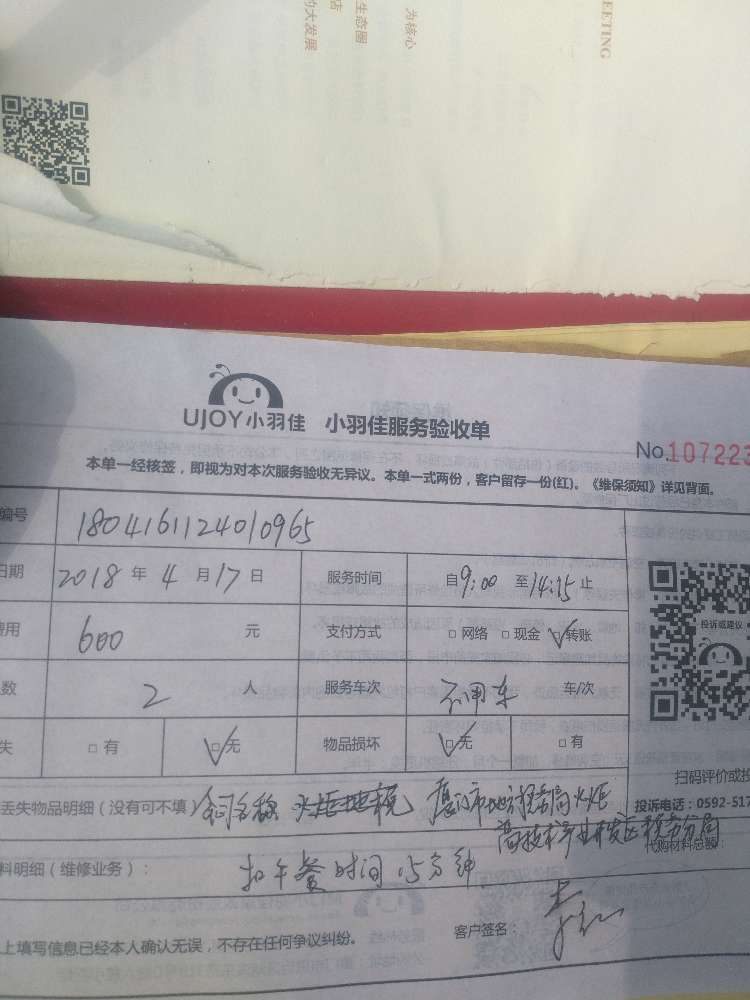 EETING
为核心
生态圈
店
的大发展
UJOY小羽佳 小羽佳服务验收单
No.107223
本单一经核签，即视为对本次服务验收无异议。本单一式两份，客户留存一份(红)。《维保须知》详见背面。
编号 1804161124010965
日期 2018 年 4 月 17 日 服务时间 自 9:00 至 14:15 止
费用 600 元 支付方式 □ 网络 □ 现金 ☑ 转账
数 2 人 服务车次 不用车 车/次
失 □ 有 ☑ 无 物品损坏 ☑ 无 □ 有
投诉或建议
扫码评价或投
投诉电话：0592-517
丢失物品明细（没有可不填） 厦门市地方税务局火炬
高技术产业开发区税务分局
代购材料总额：
料明细（维修业务）： 扣午餐时间15分钟
客户签名：
上填写信息已经本人确认无误，不存在任何争议纠纷。